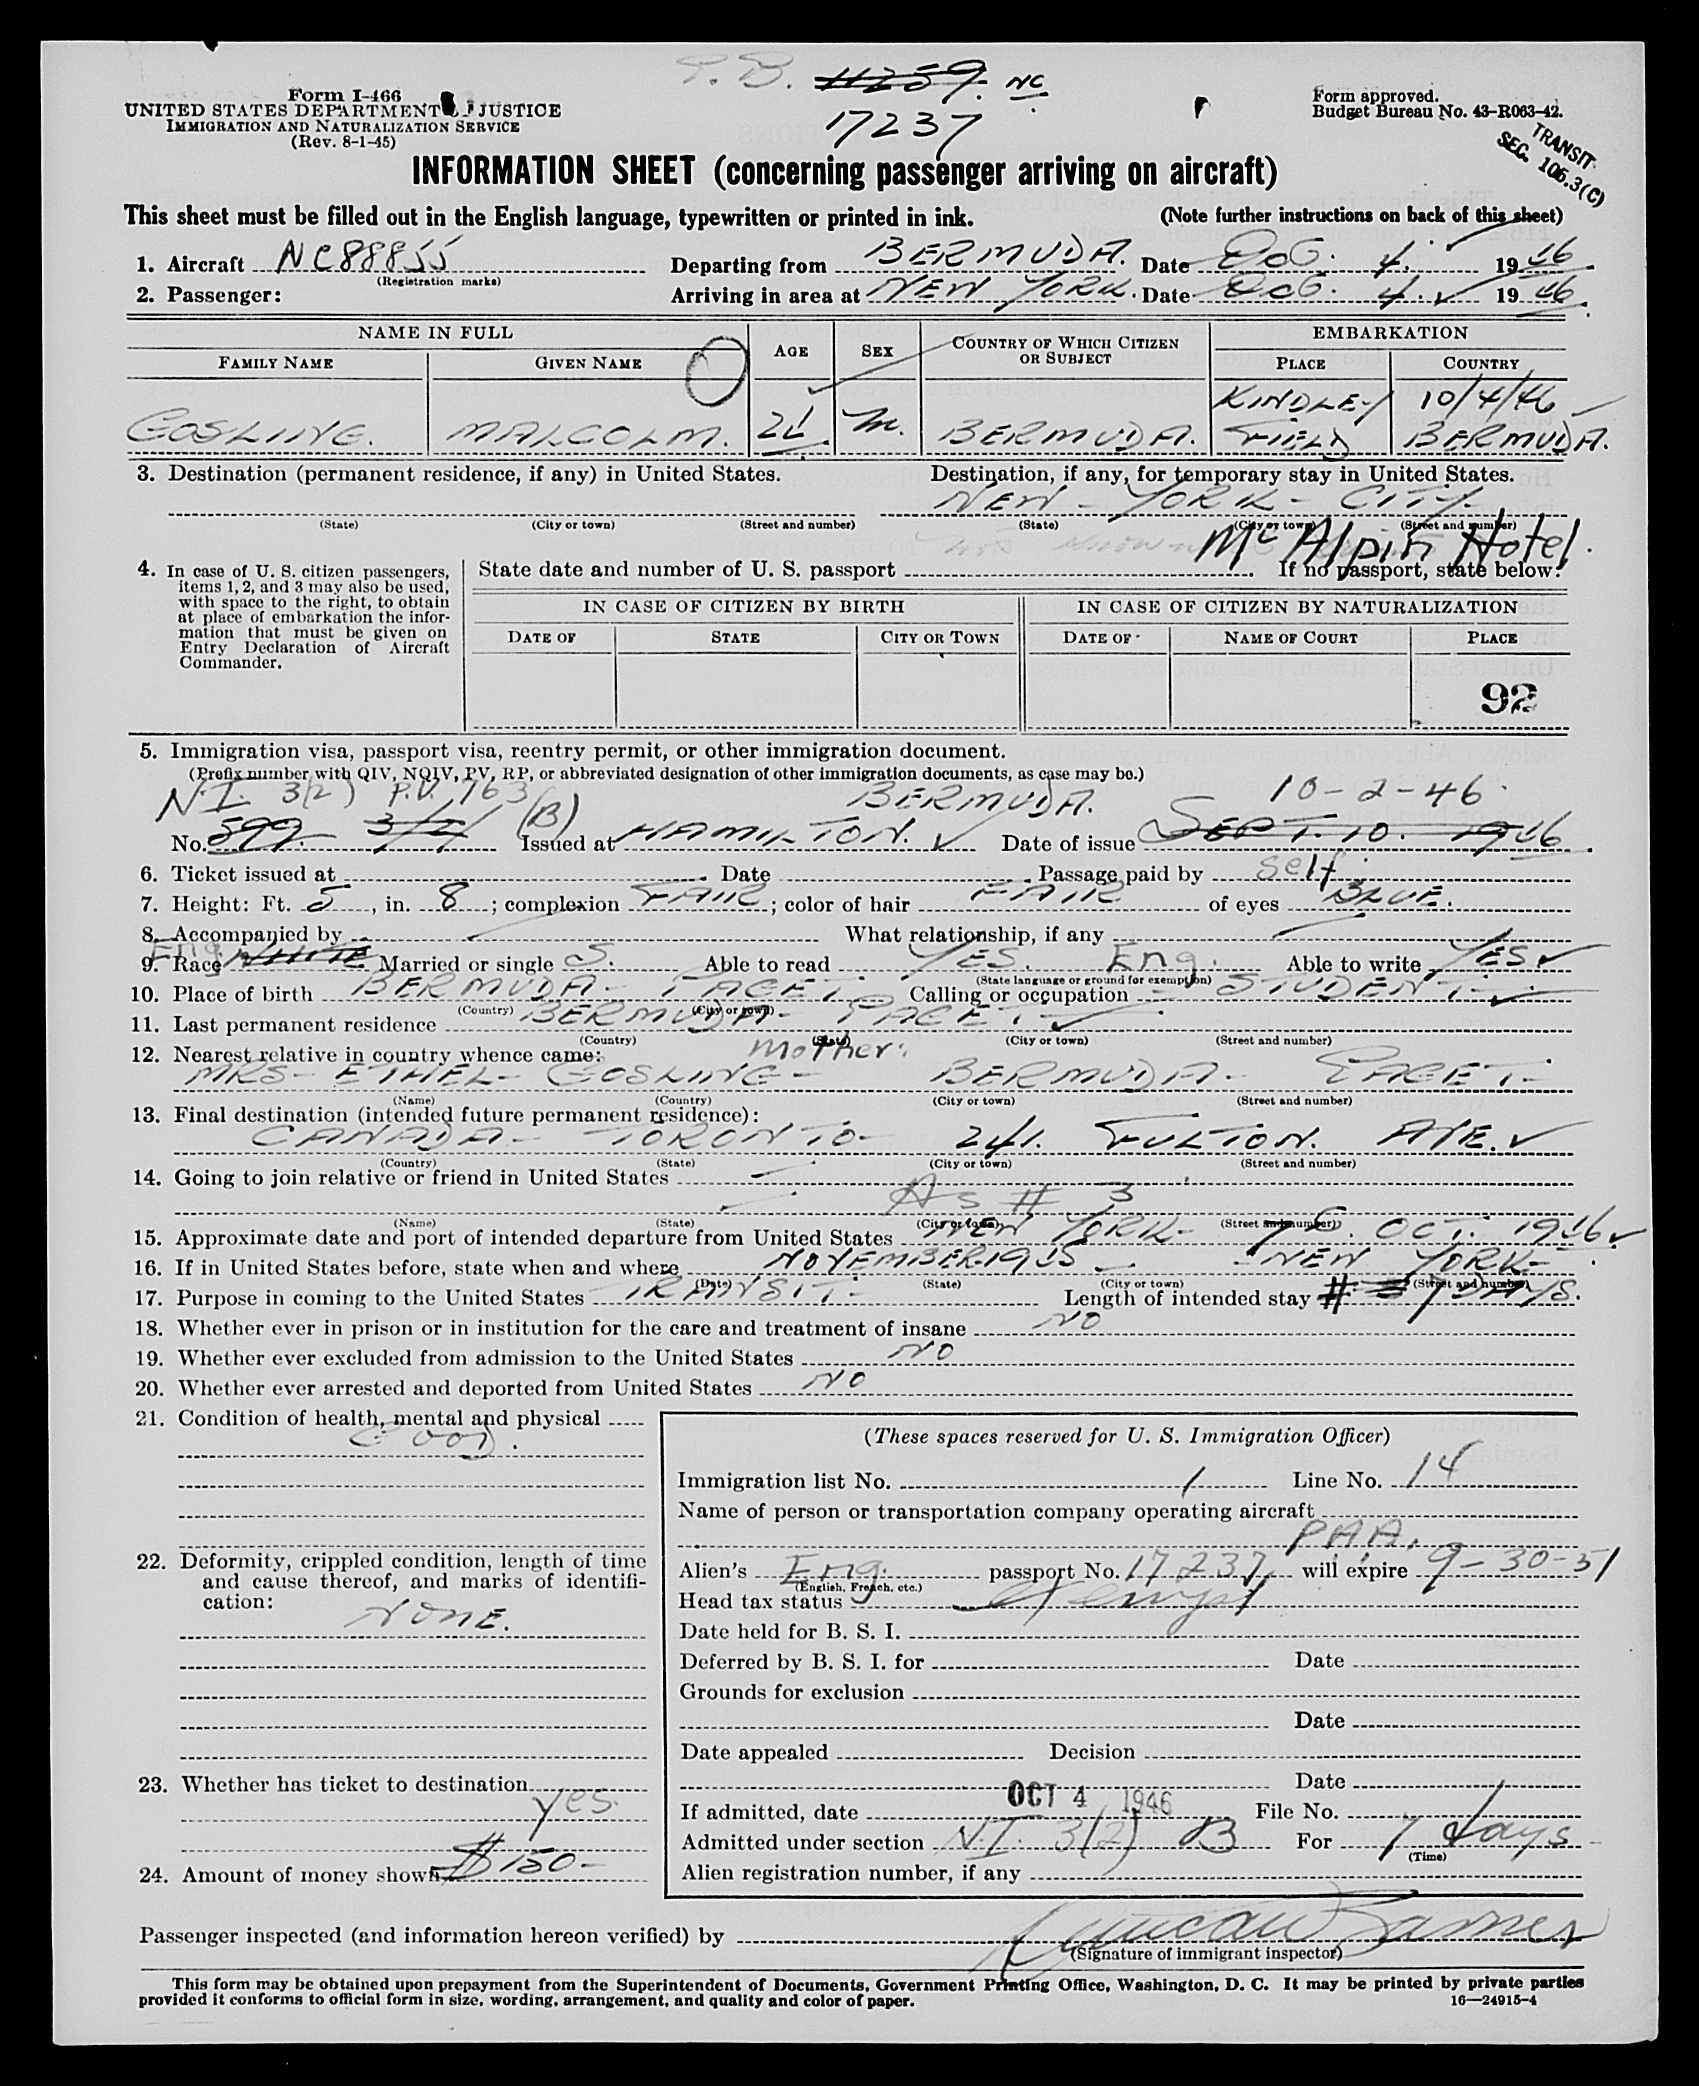 P.B. 11259. NC
17237
Form I-466
UNITED STATES DEPARTMENT OF JUSTICE
IMMIGRATION AND NATURALIZATION SERVICE
(Rev. 8-1-45)
Form approved.
Budget Bureau No. 43-R063-42.
TRANSIT
SEC. 106.3(C)
INFORMATION SHEET (concerning passenger arriving on aircraft)
This sheet must be filled out in the English language, typewritten or printed in ink. (Note further instructions on back of this sheet)
1. Aircraft NC88855 Departing from BERMUDA. Date Oct. 4. 1946
(Registration marks)
2. Passenger: Arriving in area at NEW YORK. Date Oct. 4. 1946.
NAME IN FULL AGE SEX COUNTRY OF WHICH CITIZEN OR SUBJECT EMBARKATION
FAMILY NAME GIVEN NAME PLACE COUNTRY
KINDLEY 10/4/46
GOSLING. MALCOLM. 21. M. BERMUDA. FIELD BERMUDA.
3. Destination (permanent residence, if any) in United States. Destination, if any, for temporary stay in United States.
NEW - YORK - CITY.
(State) (City or town) (Street and number) (State) (City or town) (Street and number)
McAlpin Hotel.
4. In case of U. S. citizen passengers, items 1, 2, and 3 may also be used, with space to the right, to obtain at place of embarkation the information that must be given on Entry Declaration of Aircraft Commander.
State date and number of U. S. passport . If no passport, state below:
IN CASE OF CITIZEN BY BIRTH IN CASE OF CITIZEN BY NATURALIZATION
DATE OF STATE CITY OR TOWN DATE OF NAME OF COURT PLACE
92
5. Immigration visa, passport visa, reentry permit, or other immigration document.
(Prefix number with QIV, NQIV, PV, RP, or abbreviated designation of other immigration documents, as case may be.)
N.I. 3(2) P.V. 763 (B) BERMUDA. 10-2-46
No. 599. 3/2/ Issued at HAMILTON. Date of issue SEPT. 10. 1946.
6. Ticket issued at Date Passage paid by Self
7. Height: Ft. 5, in. 8; complexion FAIR; color of hair FAIR of eyes BLUE.
8. Accompanied by What relationship, if any
9. Race Eng. WHITE Married or single S. Able to read YES. Eng. Able to write YES
(State language or ground for exemption)
10. Place of birth BERMUDA - PAGET. Calling or occupation STUDENT -
(Country) (City or town)
11. Last permanent residence BERMUDA - PAGET -
(Country) (State) (City or town) (Street and number)
12. Nearest relative in country whence came: Mother:
MRS - ETHEL - GOSLING - BERMUDA - PAGET -
(Name) (Country) (City or town) (Street and number)
13. Final destination (intended future permanent residence):
CANADA - TORONTO - 241. FULTON. AVE.
(Country) (State) (City or town) (Street and number)
14. Going to join relative or friend in United States
As # 3
(Name) (State) (City or town) (Street and number)
15. Approximate date and port of intended departure from United States NEW YORK - OCT. 1946
16. If in United States before, state when and where NOVEMBER. 1945 - NEW YORK -
(Date) (State) (City or town) (Street and number)
17. Purpose in coming to the United States TRANSIT - Length of intended stay 7 DAYS.
18. Whether ever in prison or in institution for the care and treatment of insane NO
19. Whether ever excluded from admission to the United States NO
20. Whether ever arrested and deported from United States NO
21. Condition of health, mental and physical
GOOD.
22. Deformity, crippled condition, length of time and cause thereof, and marks of identification:
NONE.
23. Whether has ticket to destination
Yes.
24. Amount of money shown $150-
(These spaces reserved for U. S. Immigration Officer)
Immigration list No. 1 Line No. 14
Name of person or transportation company operating aircraft
P.A.A.
Alien's Eng. passport No. 17237 will expire 9-30-51
(English, French, etc.)
Head tax status exempt
Date held for B. S. I.
Deferred by B. S. I. for Date
Grounds for exclusion
Date
Date appealed Decision
Date
If admitted, date OCT 4 1946 File No.
Admitted under section N.I. 3(2) B For 7 days
(Time)
Alien registration number, if any
Passenger inspected (and information hereon verified) by
(Signature of immigrant inspector)
This form may be obtained upon prepayment from the Superintendent of Documents, Government Printing Office, Washington, D. C. It may be printed by private parties
provided it conforms to official form in size, wording, arrangement, and quality and color of paper. 16—24915-4